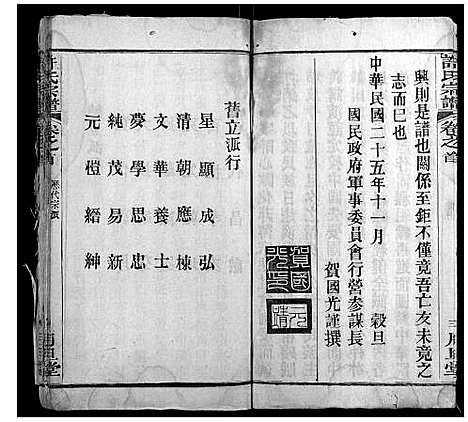 許氏宗譜 卷之首
興則是譜也關係至鉅不僅竟吾亡友未竟之
志而已也
中華民國二十五年十一月 穀旦
國民政府軍事委員會行營參謀長
賀國光謹撰
賀國光印
元靖
舊立派行
星顯成弘
清朝應棟
文華養士
夢學思忠
純茂易新
元愷縉紳
許氏宗譜 卷之首